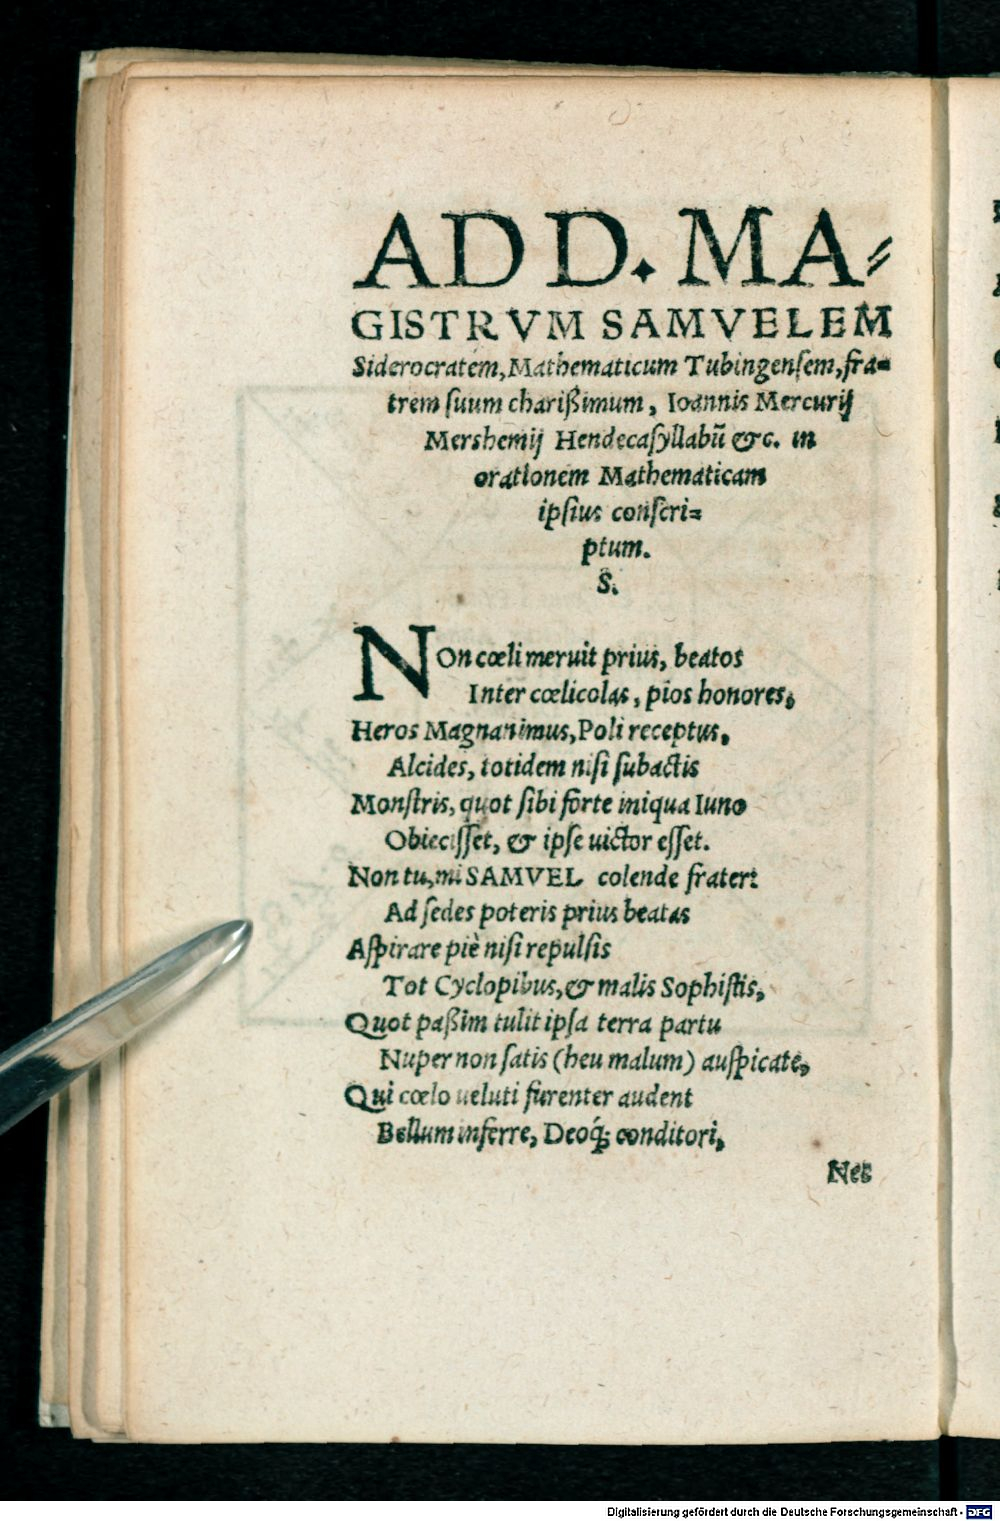 AD D. MA⸗
GISTRVM SAMVELEM
Siderocratem, Mathematicum Tubingenſem, fra⸗
trem ſuum charißimum, Ioannis Mercurij
Mershemij Hendecaſyllabū &c. in
orationem Mathematicam
ipſius conſcri⸗
ptum.
S.
NOn cœli meruit prius, beatos
Inter cœlicolas, pios honores,
Heros Magnanimus, Poli receptus,
Alcides, totidem niſi ſubactis
Monſtris, quot ſibi forte iniqua Iuno
Obieciſſet, & ipſe uictor eſſet.
Non tu, mi SAMVEL colende frater:
Ad ſedes poteris prius beatas
Aſpirare piè niſi repulſis
Tot Cyclopibus, & malis Sophiſtis,
Quot paßim tulit ipſa terra partu
Nuper non ſatis (heu malum) auſpicate,
Qui cœlo ueluti furenter audent
Bellum inferre, Deoq́; conditori,
Nec
Digitalisierung gefördert durch die Deutsche Forschungsgemeinschaft - DFG